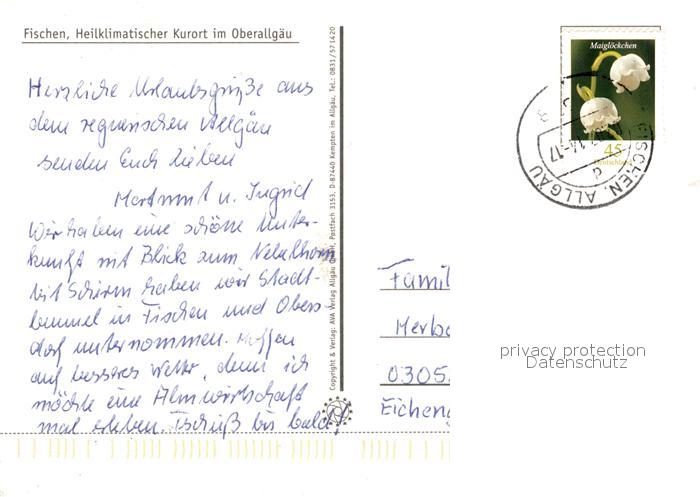 Fischen, Heilklimatischer Kurort im Oberallgäu
Herzliche Urlaubsgrüße aus
dem regnerischen Allgäu
senden Euch lieben
Hartmut u. Ingrid
Wir haben eine schöne Unter-
kunft mit Blick zum Nebelhorn
Mit Schirm haben wir Stadt-
bummel in Fischen und Obers
dorf unternommen. Hoffen
auf besseres Wetter, denn ich
möchte eine Almwirtschaft
mal erleben. Tschüß bis bald
Copyright & Verlag: AVA Verlag Allgäu GmbH, Postfach 3153, D-87440 Kempten im Allgäu, Tel.: 0831/571420
Maiglöckchen
45
Deutschland
FISCHEN, ALLGÄU
Famil
Merb
0305
Eicheng
privacy protection
Datenschutz